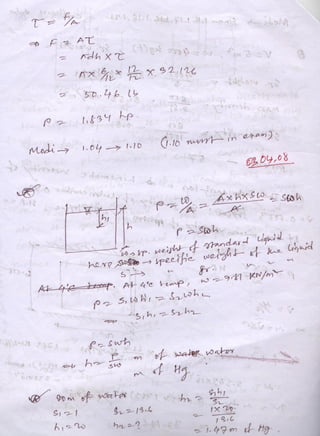 τ = F/A
⇒ F = Aτ
= πdh × τ
= π × 6/12 × 12/12 × 32.126
= 50.46 lb
P = 1.834 hp
Modi → 1.04 → 1.10 (1.10 must in exam)
03.04.08
P = W/A = A×h×Sw/A = Swh
h₁ h
P = Swh
w → sp. weight of standard liquid
here, S → specific weight of the liquid
At 4°C temp, w = 9.81 KN/m³
P = S₁wh₁ = S₂wh₂
⇒ S₁h₁ = S₂h₂
P = Swh
⇒ h = P/Sw m of water
m of Hg
20m of water h₂ = S₁h₁/S₂
S₁ = 1 S₂ = 13.6 = 1×20/13.6
h₁ = 20 h₂ = ? = 1.47m of Hg.